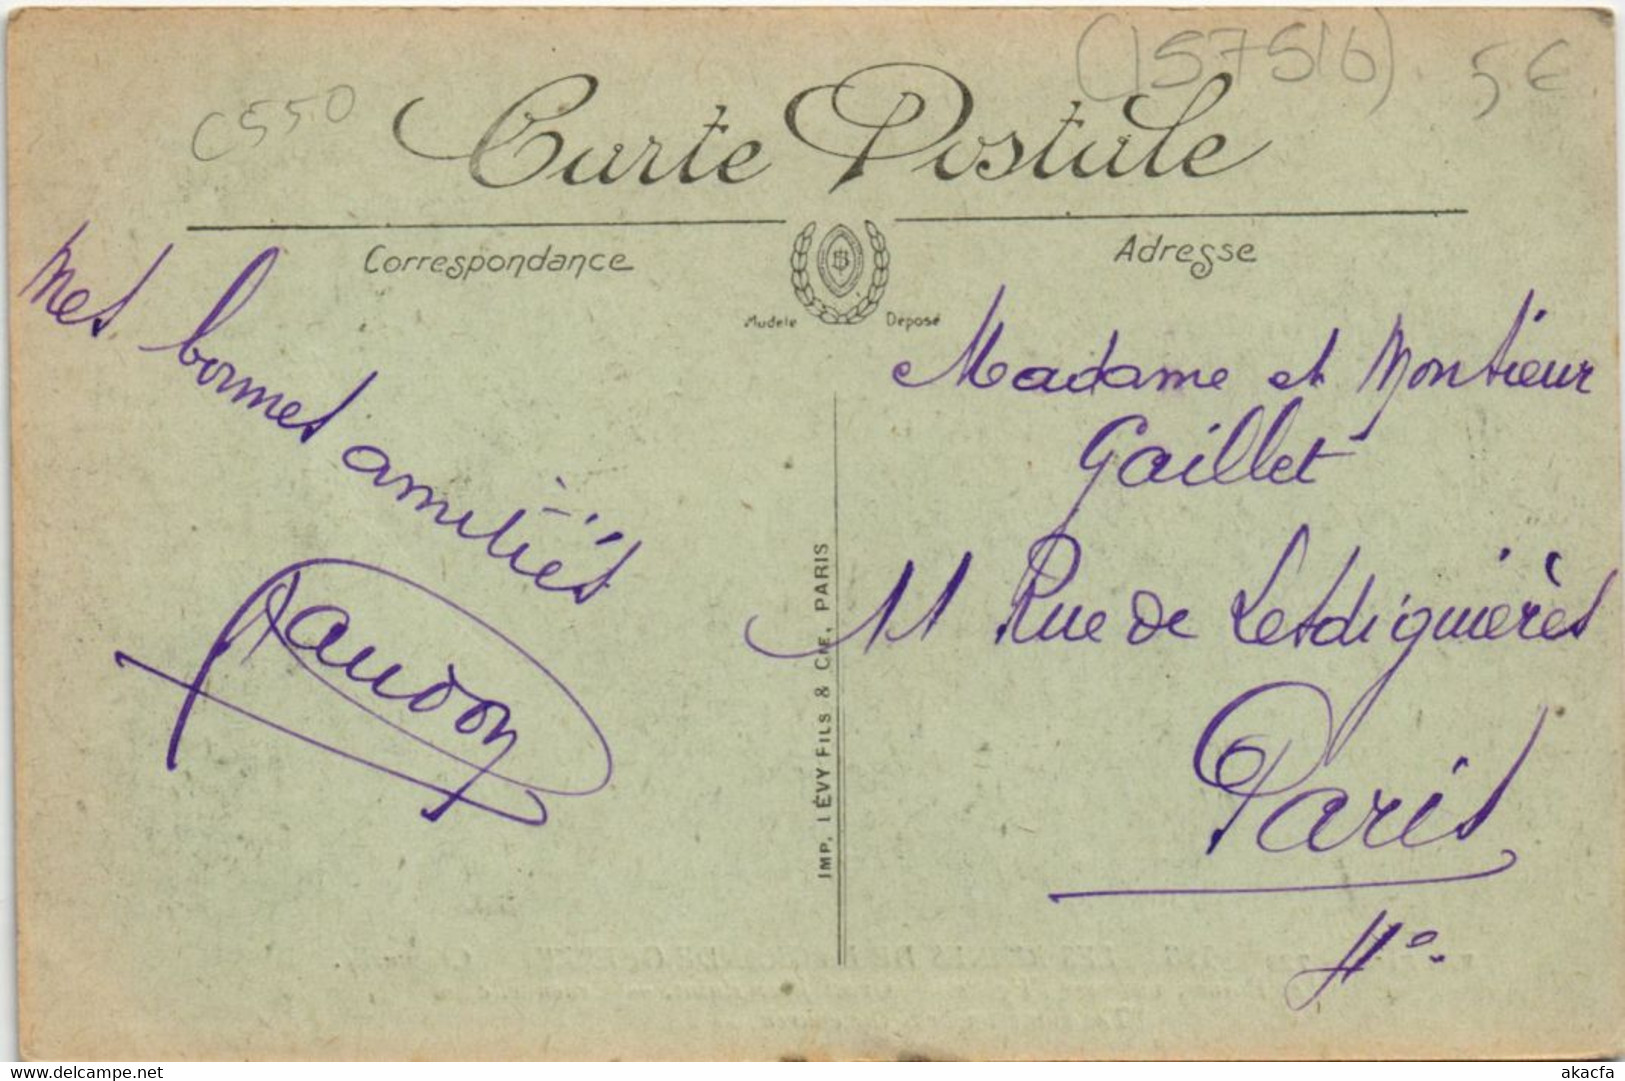 (157516) 5€
C550
Carte Postale
Correspondance
Adresse
Modèle Déposé
Mes bonnes amitiés
Madame et Monsieur
Gaillet
11 Rue de Lesdiguières
Paris
4e
IMP. LÉVY FILS & CIE, PARIS
delcampe.net
akacfa